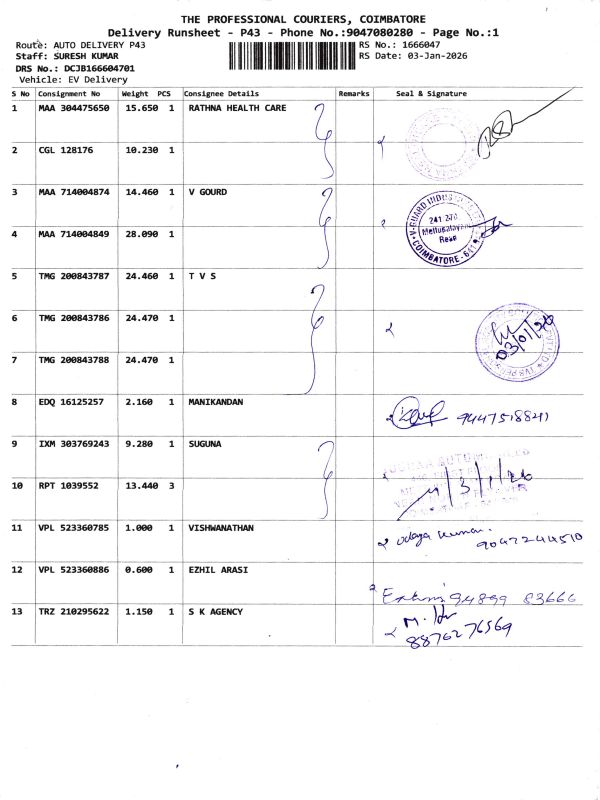 THE PROFESSIONAL COURIERS, COIMBATORE
Delivery Runsheet - P43 - Phone No.:9047080280 - Page No.:1
Route: AUTO DELIVERY P43
RS No.: 1666047
Staff: SURESH KUMAR
RS Date: 03-Jan-2026
DRS No.: DCJB166604701
Vehicle: EV Delivery
S No Consignment No Weight PCS Consignee Details Remarks Seal & Signature
1 MAA 304475650 15.650 1 RATHNA HEALTH CARE
2 CGL 128176 10.230 1
3 MAA 714004874 14.460 1 V GOURD
V-GUARD INDUS
241 270
Mettupalayam
Road
COIMBATORE - 641
4 MAA 714004849 28.090 1
5 TMG 200843787 24.460 1 T V S
6 TMG 200843786 24.470 1
03/01/26
7 TMG 200843788 24.470 1
8 EDQ 16125257 2.160 1 MANIKANDAN
9447518841
9 IXM 303769243 9.280 1 SUGUNA
3/1/26
10 RPT 1039552 13.440 3
11 VPL 523360785 1.000 1 VISHWANATHAN
Udaya Kumar.
9047244510
12 VPL 523360886 0.600 1 EZHIL ARASI
94899 83666
13 TRZ 210295622 1.150 1 S K AGENCY
8876276569